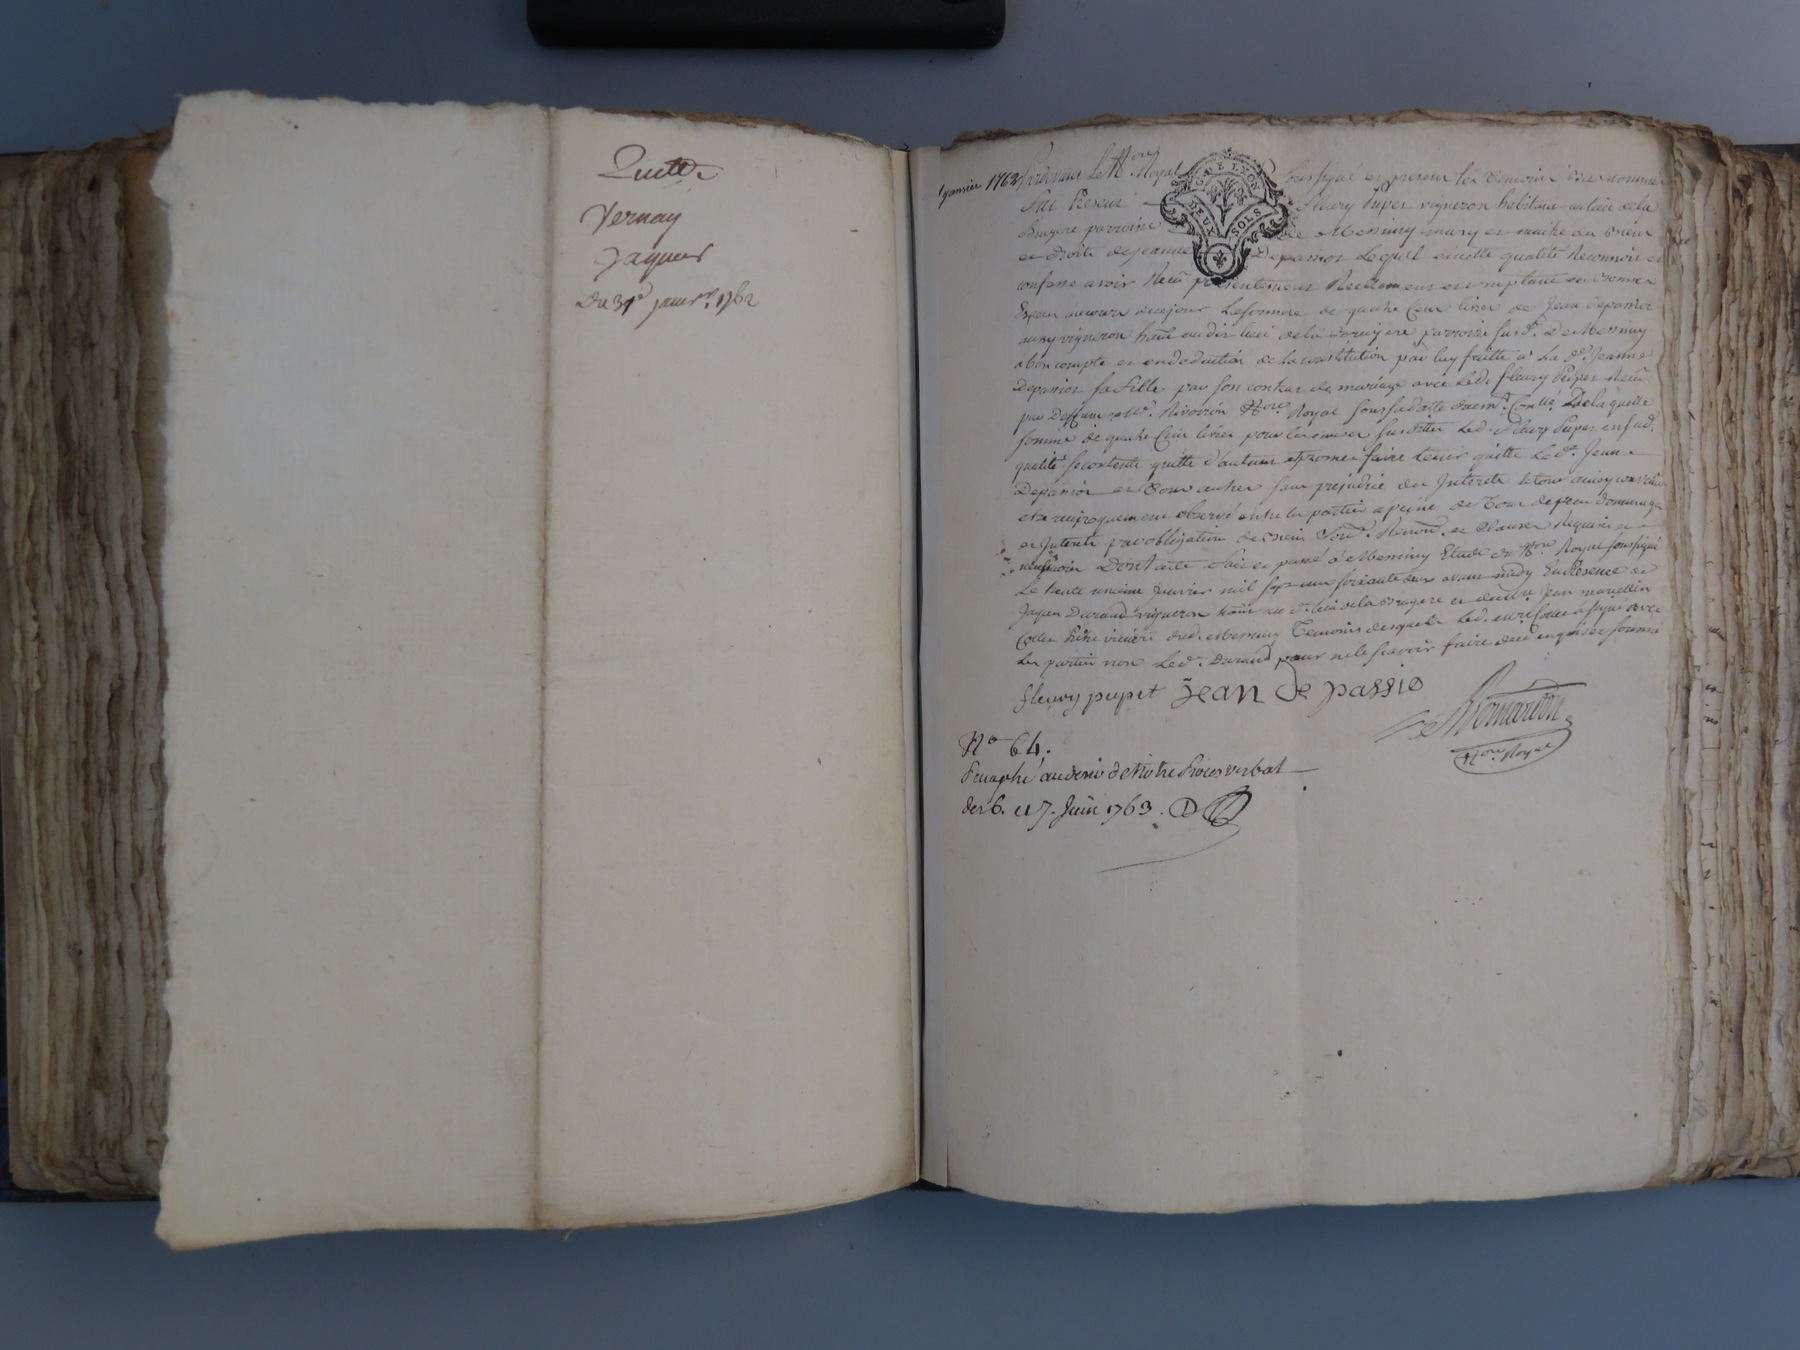 Quitte
Vernay
Jaques
Du 31e janvr. 1762
janvier 1762
Pardevant le Nre Royal soussigné en presence les temoins bas nommés
Fut Present Fleury Pupet vigneron habitant au lieu de la
Bruyere parroisse de Messimy mary et maitre des biens
et droits de jeanne Depassior Lequel en cette qualité Reconnoit et
confesse avoir Receu presentement Reellement et comptant en bonnes
Especes aucours de ce jour La somme de quatre Cent livres de Jean depassior
aussy vigneron habt. audit lieu de la bruyere parroisse susd. De Messimy
à bon compte et en deduction de la constitution par luy faitte à La de. Jeanne
Depassior sa fille par son contrat de mariage avec led. fleury Pupet Receu
par Deffunt Rivoiron Nre Royal sous sa datte duement Conllé De laquelle
somme de quatre Cent livres pour les causes susdittes Led. fleury Pupet en sad.
qualité se contente quitte d'autant et promet faire tenir quitte Led. Jean
Depassior et tous autres sans prejudice des Interets le tout ainsy convenu
et reciproquement observé entre les parties à peine de tous depens dommages
et Interets par obligation de biens Soum. Renonn. et Clauses Requises et
necessaires Dont acte Fait et passé à Messimy Etude du Nre Royal soussigné
Le trente unieme janvier mil sept cent soixante deux avant midy En Presence de
Jaques Durand vigneron habt. au d. lieu de la Bruyere et de Mre. Jean marcellin
Collet Prêtre vicaire dud. Messimy Temoins desquels Led. Mre. Collet a signé avec
les parties non Led. Durand pour ne le scavoir faire de ce enquis et sommé
fleury pupet Jean de passio
Nre Royal
No. 64.
Paraphé au desir de Notre Procès verbal
des 6. et 7. Juin 1763.
G. DE LYON
DEUX SOLS